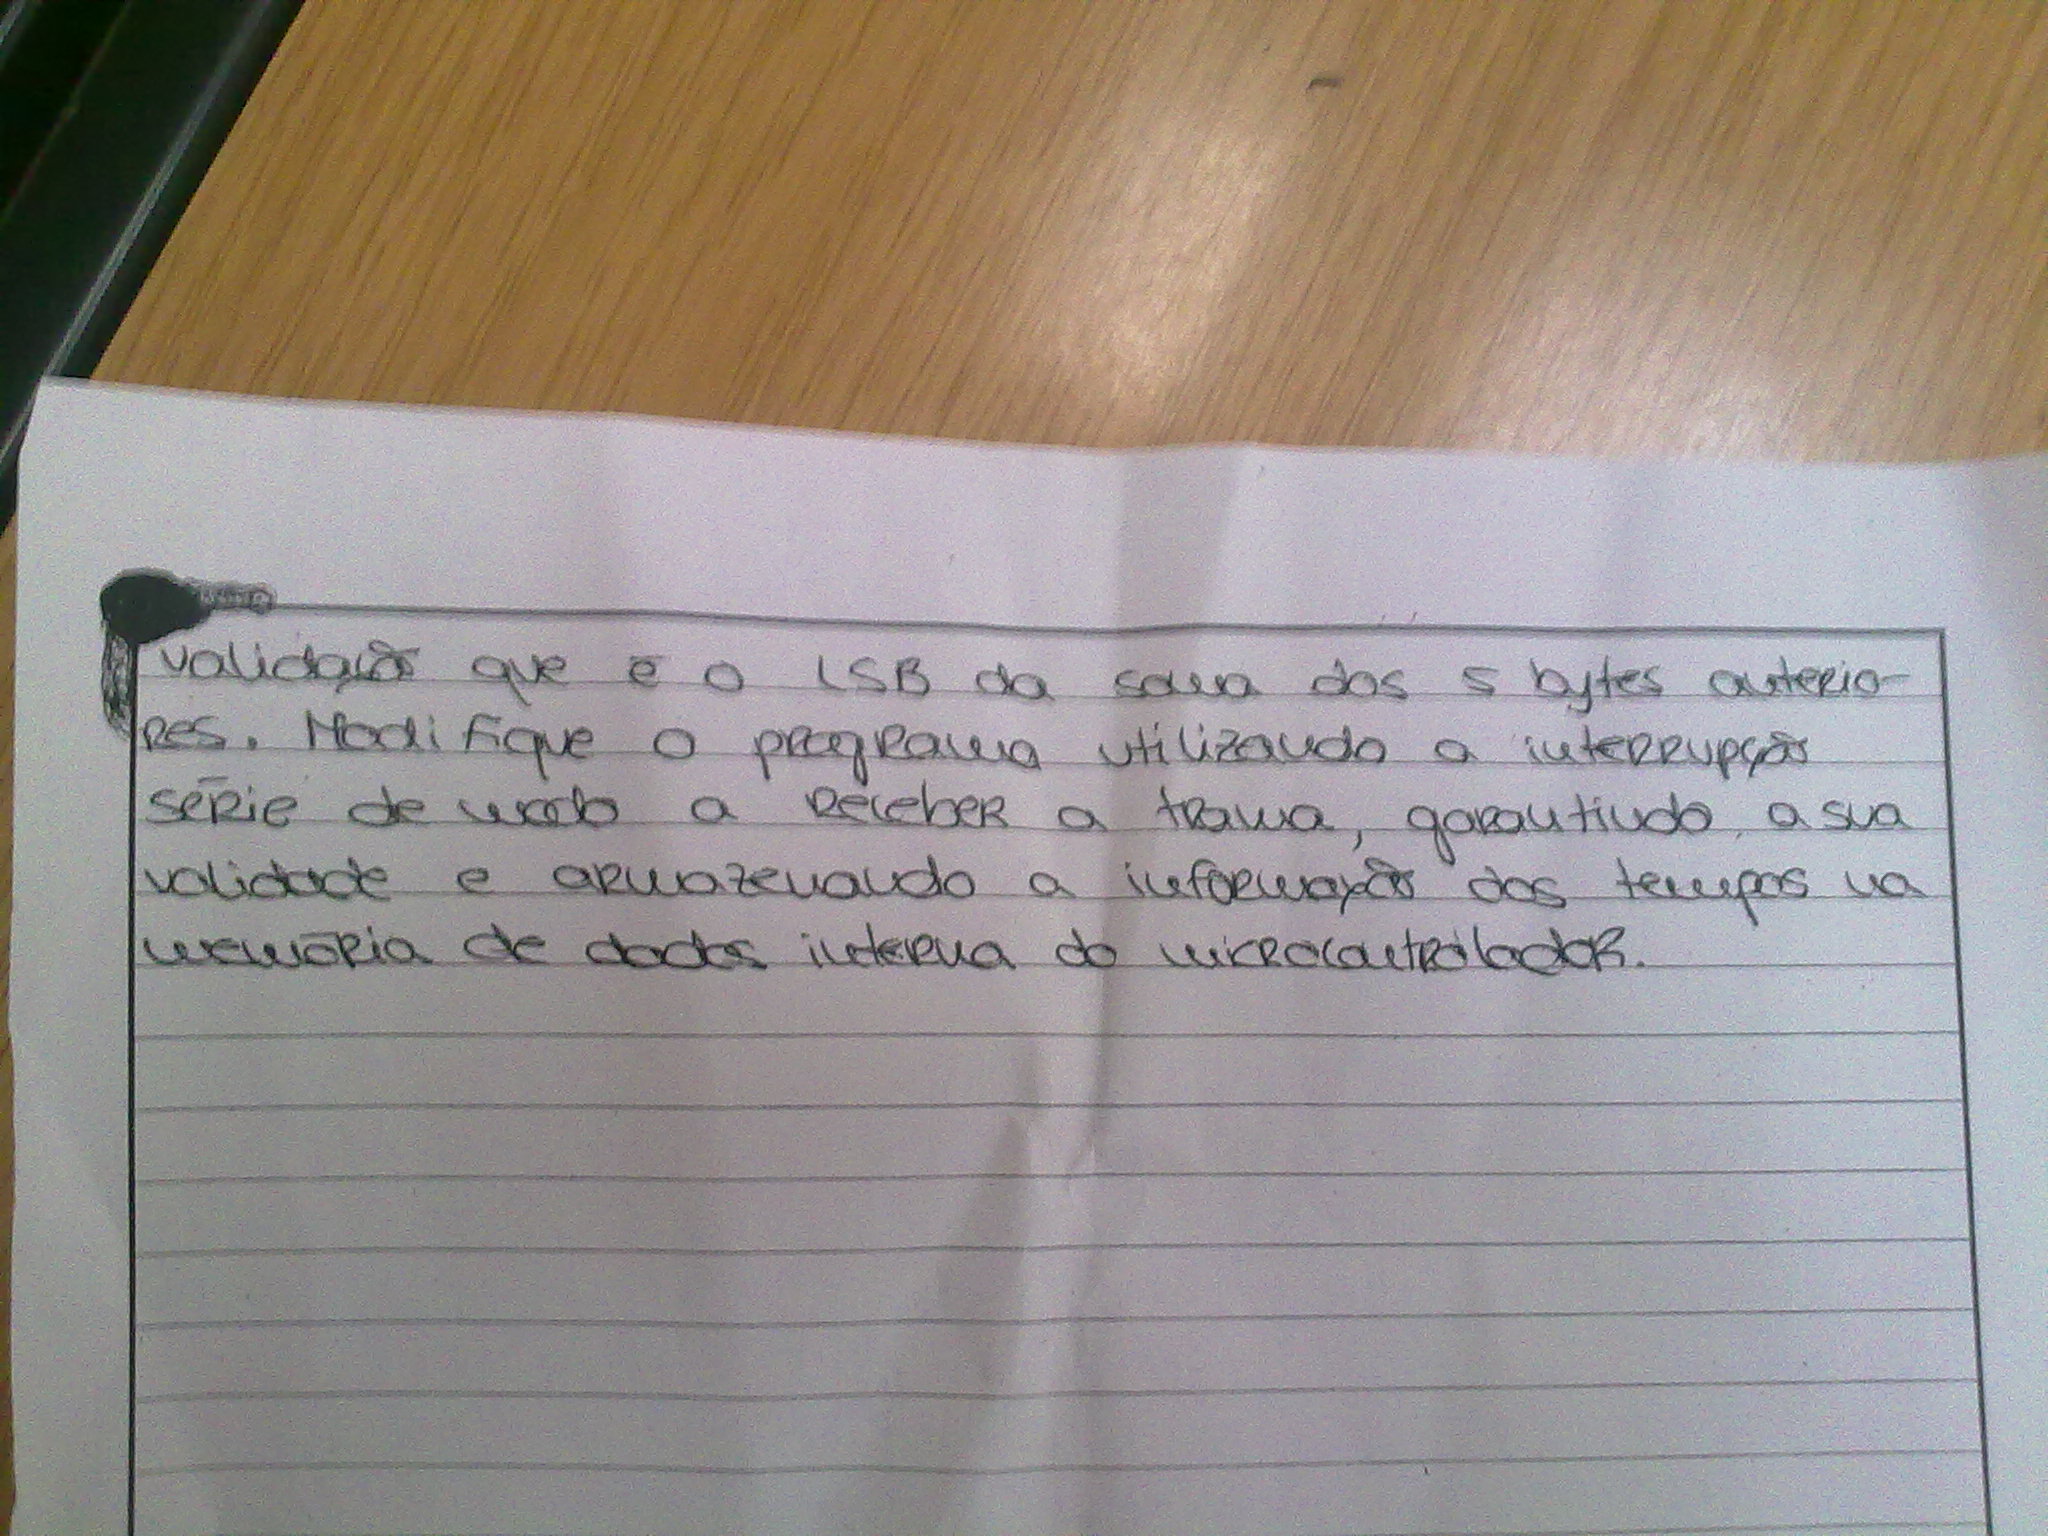 validação que é o LSB da soma dos 5 bytes anterio-
res. Modifique o programa utilizando a interrupção
série de modo a receber a trama, garantindo a sua
validade e armazenando a informação dos tempos na
memória de dados interna do microcontrolador.